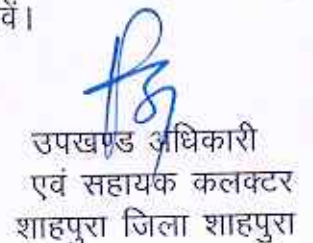 वें।
उपखण्ड अधिकारी
एवं सहायक कलक्टर
शाहपुरा जिला शाहपुरा